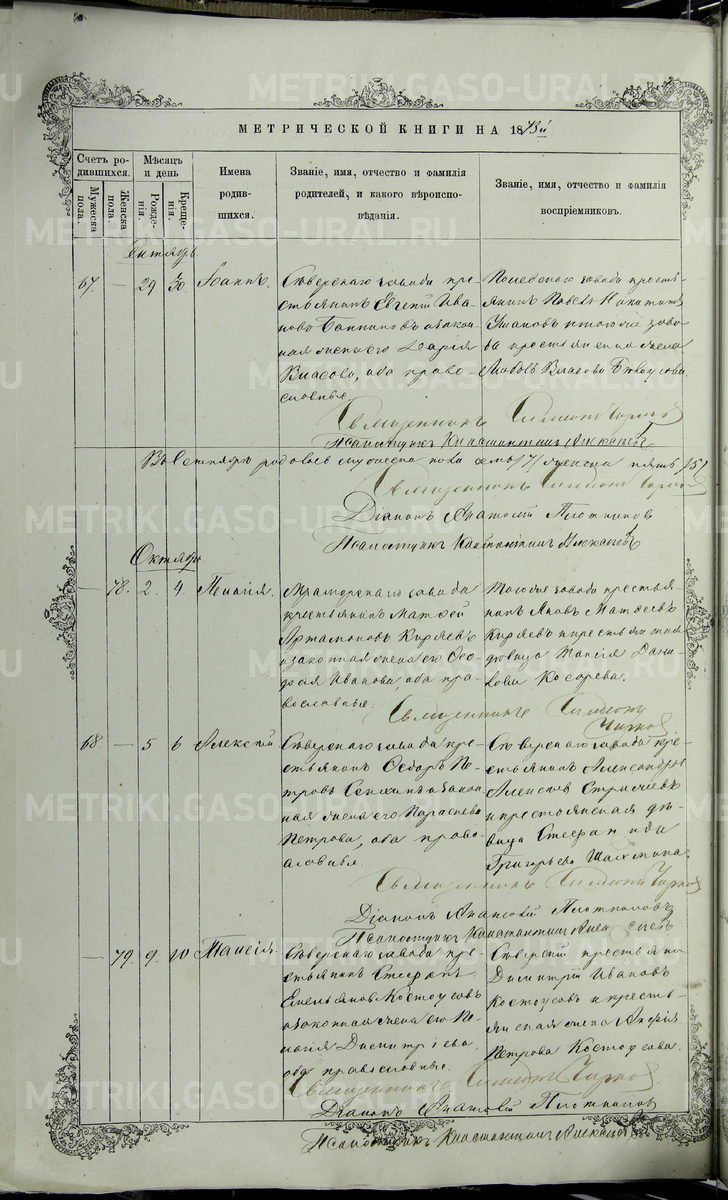 METRIKI.GASO-URAL.RU
МЕТРИЧЕСКОЙ КНИГИ НА 1873й
Счетъ родившихся.
Мужеска пола.
Женска пола.
Мѣсяцъ и день
Рожденія.
Крещенія.
Имена родившихся.
Званіе, имя, отчество и фамилія родителей, и какого вѣроисповѣданія.
Званіе, имя, отчество и фамилія воспріемниковъ.
Сентябрь
67. — 29 30 Іоаннъ.
Сѣверскаго завода кре-
стьянинъ Евгеній Ива-
новъ и закон-
ная жена его Дарія
Власова, оба право-
славные.
Полевскаго завода кресть-
янинъ Павелъ Никитинъ
Ушаковъ и того же заво-
да крестьянская жена
Любовь Власова
Священникъ Симеонъ
Псаломщикъ Константинъ Алексѣевъ
Въ Сентябрѣ родилось мужеска пола семь /7/ женска пять /5/
Священникъ Симеонъ
Діаконъ Анатолій Плотниковъ
Псаломщикъ Константинъ Алексѣевъ
Октябрь
— 78. 2. 4. Пелагія.
Мраморскаго завода
крестьянинъ Матѳей
Артамоновъ Киряевъ
и законная жена его Ѳео-
Иванова, оба пра-
вославные.
Того же завода крестья-
нинъ Яковъ Матѳеевъ
Киряевъ и крестьянская
дѣвица Таисія Дани-
лова Косарева.
Священникъ Симеонъ
68. — 5 6 Алексѣй
Сѣверскаго завода кре-
стьянинъ Ѳедоръ Пе-
тровъ и закон-
ная жена его Параскева
Петрова, оба право-
славные.
Сѣверскаго завода кре-
стьянинъ Александръ
Алексѣевъ
и крестьянская дѣ-
вица Стефанида
Григорьева
Священникъ Симеонъ
Діаконъ Анатолій Плотниковъ
Псаломщикъ Константинъ Алексѣевъ
— 79. 9. 10 Таисія.
Сѣверскаго завода кре-
стьянинъ Стефанъ
Емельяновъ Костоусовъ
и законная жена его Пе-
лагія Димитріева
оба православные.
Сѣверскій крестьянинъ
Димитрій Ивановъ
Костоусовъ и кресть-
янская жена
Петрова Костоусова.
Священникъ Симеонъ
Діаконъ Анатолій Плотниковъ
Псаломщикъ Константинъ Алексѣевъ